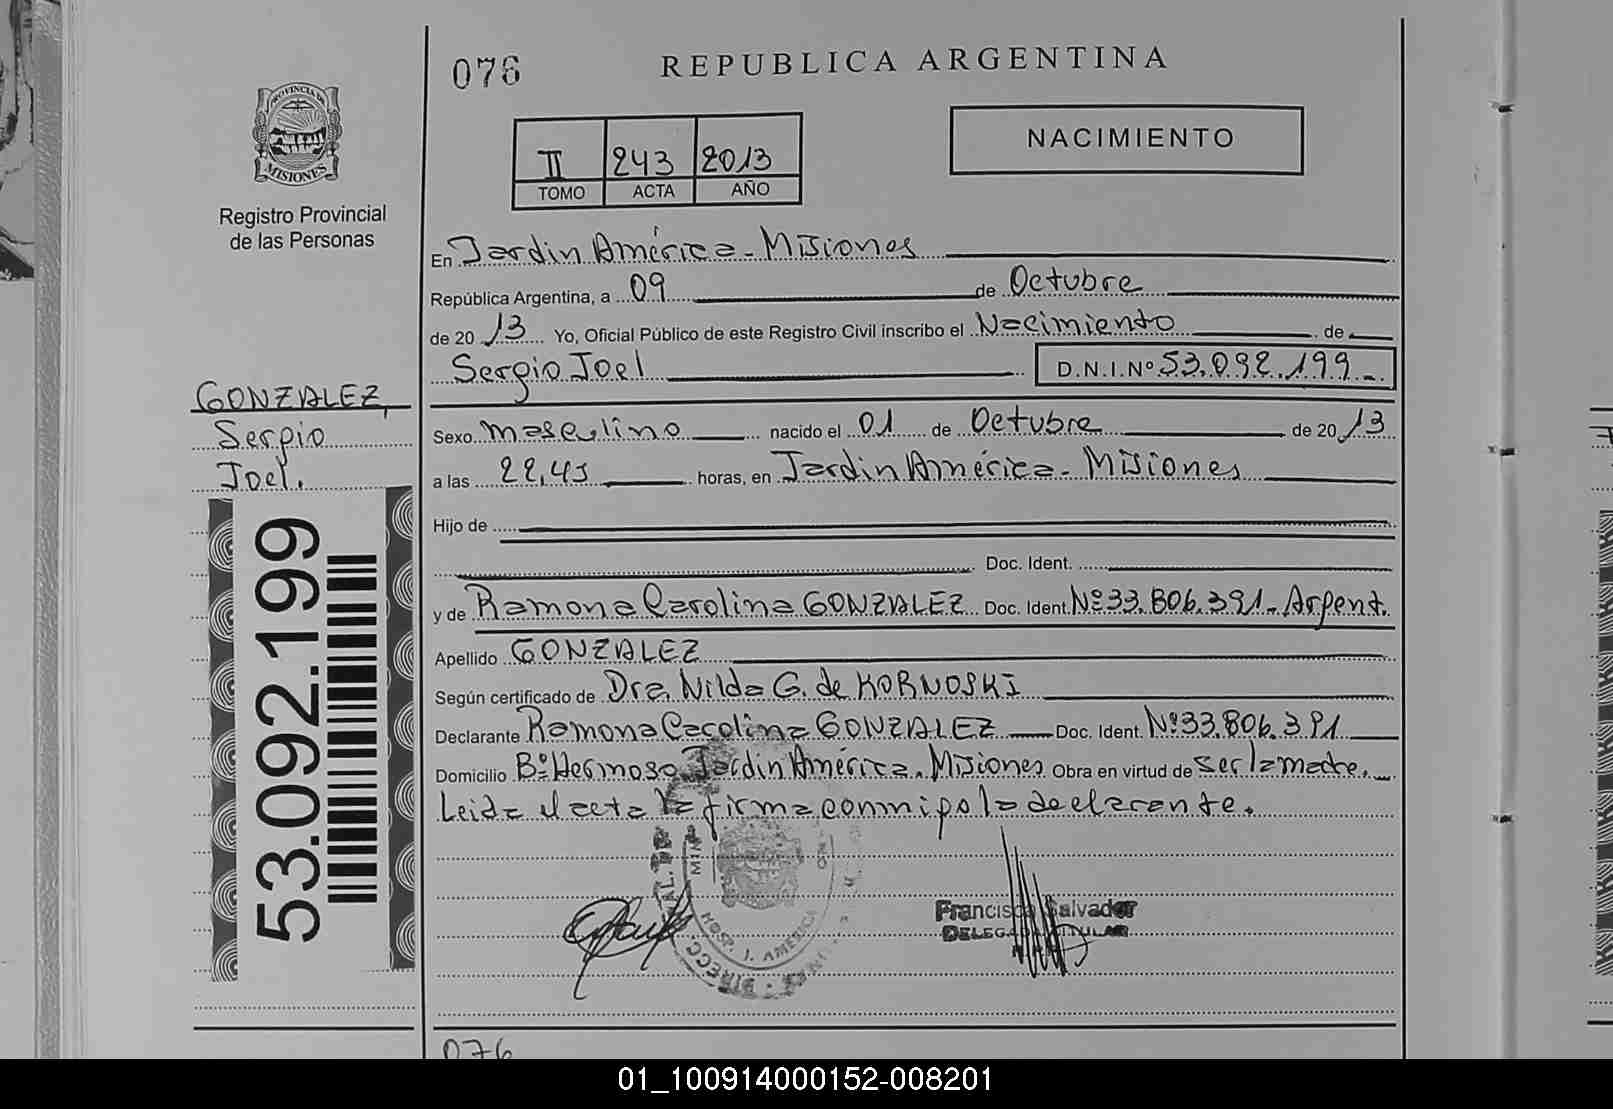 076
REPUBLICA ARGENTINA
PROVINCIA DE
MISIONES
Registro Provincial
de las Personas
II 243 2013
TOMO ACTA AÑO
NACIMIENTO
En Jardin América - Misiones
República Argentina, a 09 de Octubre
de 20 13 Yo, Oficial Público de este Registro Civil inscribo el Nacimiento de
Sergio Joel D.N.I.Nº 53.092.199
GONZALEZ,
Sergio
Joel.
Sexo masculino nacido el 01 de Octubre de 20 13
a las 22,45 horas, en Jardin América - Misiones
Hijo de
Doc. Ident.
y de Ramona Carolina GONZALEZ Doc. Ident. Nº 33.806.391 - Argent.
Apellido GONZALEZ
Según certificado de Dra. Nilda G. de KORNOSKI
Declarante Ramona Carolina GONZALEZ Doc. Ident. Nº 33.806.391
Domicilio Bº Hermoso Jardin América. Misiones Obra en virtud de ser la madre.
Leida el acta la firma conmigo la declarante.
53.092.199
HOSP. J. AMERICA
DIRECC
Francisco Salvador
DELEGADO TITULAR
076
01_100914000152-008201